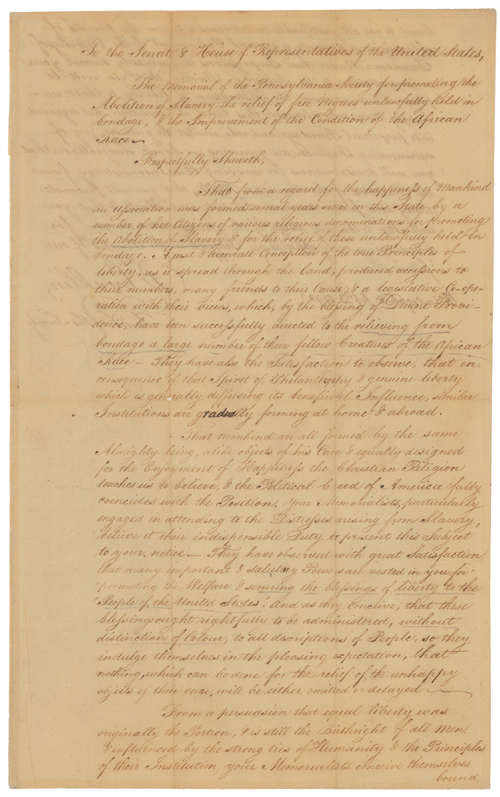 To the Senate & House of Representatives of the United States,
The Memorial of the Pennsylvania Society for promoting the
Abolition of Slavery, the relief of free Negroes unlawfully held in
bondage, & the Improvement of the Condition of the African
Race—
Respectfully Sheweth,
That from a regard for the happiness of Mankind
an Association was formed several years since in this State by a
number of her Citizens of various religious denominations for promoting
the Abolition of Slavery & for the relief of those unlawfully held in
bondage. A just & accurate Conception of the true Principles of
liberty, as it spread through the land, produced accessions to
their numbers, many friends to their Cause, & a legislative Co-ope-
ration with their views, which, by the blessing of Divine Provi-
dence, have been successfully directed to the relieving from
bondage a large number of their fellow Creatures of the African
Race— They have also the Satisfaction to observe, that in
consequence of that Spirit of Philanthropy & genuine liberty
which is generally diffusing its beneficial Influence, similar
Institutions are gradually forming at home & abroad.
That mankind are all formed by the same
Almighty being, alike objects of his Care & equally designed
for the Enjoyment of Happiness the Christian Religion
teaches us to believe & the Political Creed of America fully
coincides with the Position. Your Memorialists, particularly
engaged in attending to the Distresses arising from Slavery,
believe it their indispensible Duty to present this Subject
to your notice— They have observed with great Satisfaction
that many important & salutary Powers are vested in you for
"promoting the Welfare & securing the blessings of liberty to the
"People of the United States." And as they conceive, that these
blessings ought rightfully to be administered, without
distinction of Colour, to all descriptions of People, so they
indulge themselves in the pleasing expectation, that
nothing, which can be done for the relief of the unhappy
objects of their care, will be either omitted or delayed—
From a persuasion that equal liberty was
originally the Portion, & is still the birthright of all Men
& influenced by the strong ties of Humanity & the Principles
of their Institution, your Memorialists conceive themselves
bound